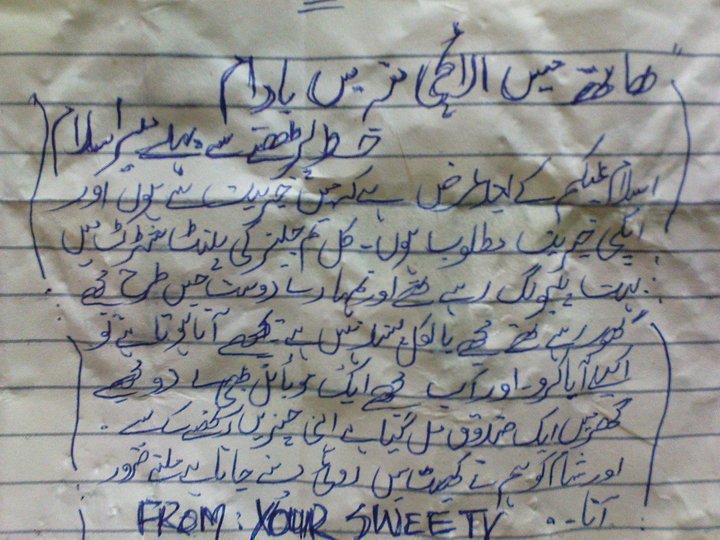 ہاتھ میں الائچی منہ میں بادام
خط پڑھنے سے پہلے میرا سلام
اسلام علیکم کے بعد عرض ہے کہ میں خیریت سے ہوں اور
آپکی خیریت مطلوب ہوں۔ کل تم جلیز کی پینٹ شرٹ میں
بہت لگ رہے تھے اور تمہارا دوست جس طرح مجھے
گھور رہے تھے مجھے بالکل پسند نہیں ہے تجھے آنا ہوتا ہے تو
اکیلے آیا کرو۔ اور آپ مجھے ایک موبائل بھی دو مجھے
گھر میں ایک صندوق مل گیا ہے اپنی چیزیں رکھنے کے
اور شام کو ہم نے کھیت میں روٹی دینے جانا ہے ملنے ضرور
آنا۔۔
FROM: YOUR SWEETY